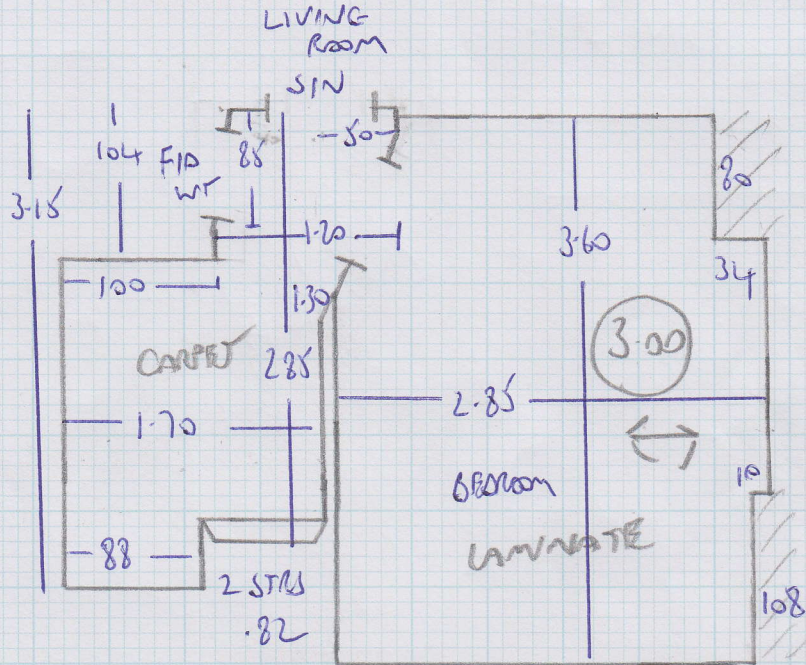 LIVING
ROOM
SIN
104
FID
WT
85
50
80
3.15
1.20
3.60
34
100
1.30
3.00
CARPET
285
2.85
1.70
10
BEDROOM
LAMINATE
88
2 STRS
.82
108